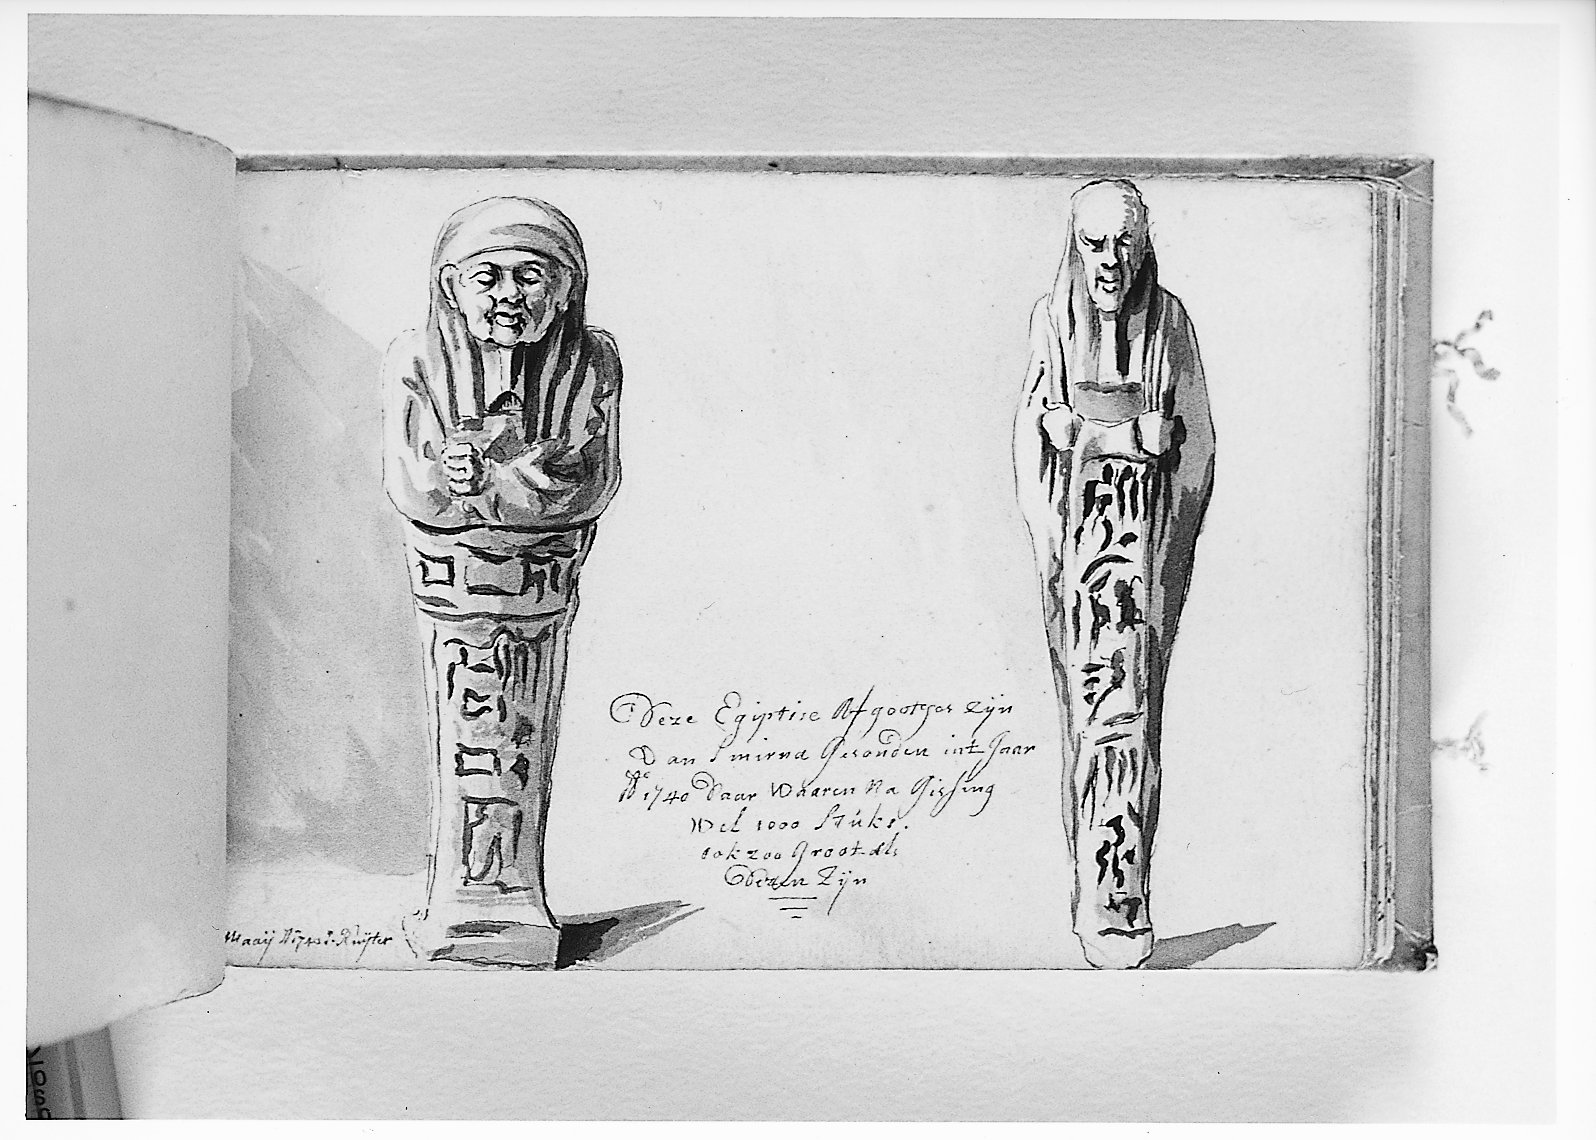 Deze Egiptise Afgootges zijn
Van Smirna Gesonden int Jaar
Ao 1740 Daar Waaren Na Gissing
Wel 1000 Stúks.
ook zoo Groot als
Dezen Zijn
Maaij Ruijter